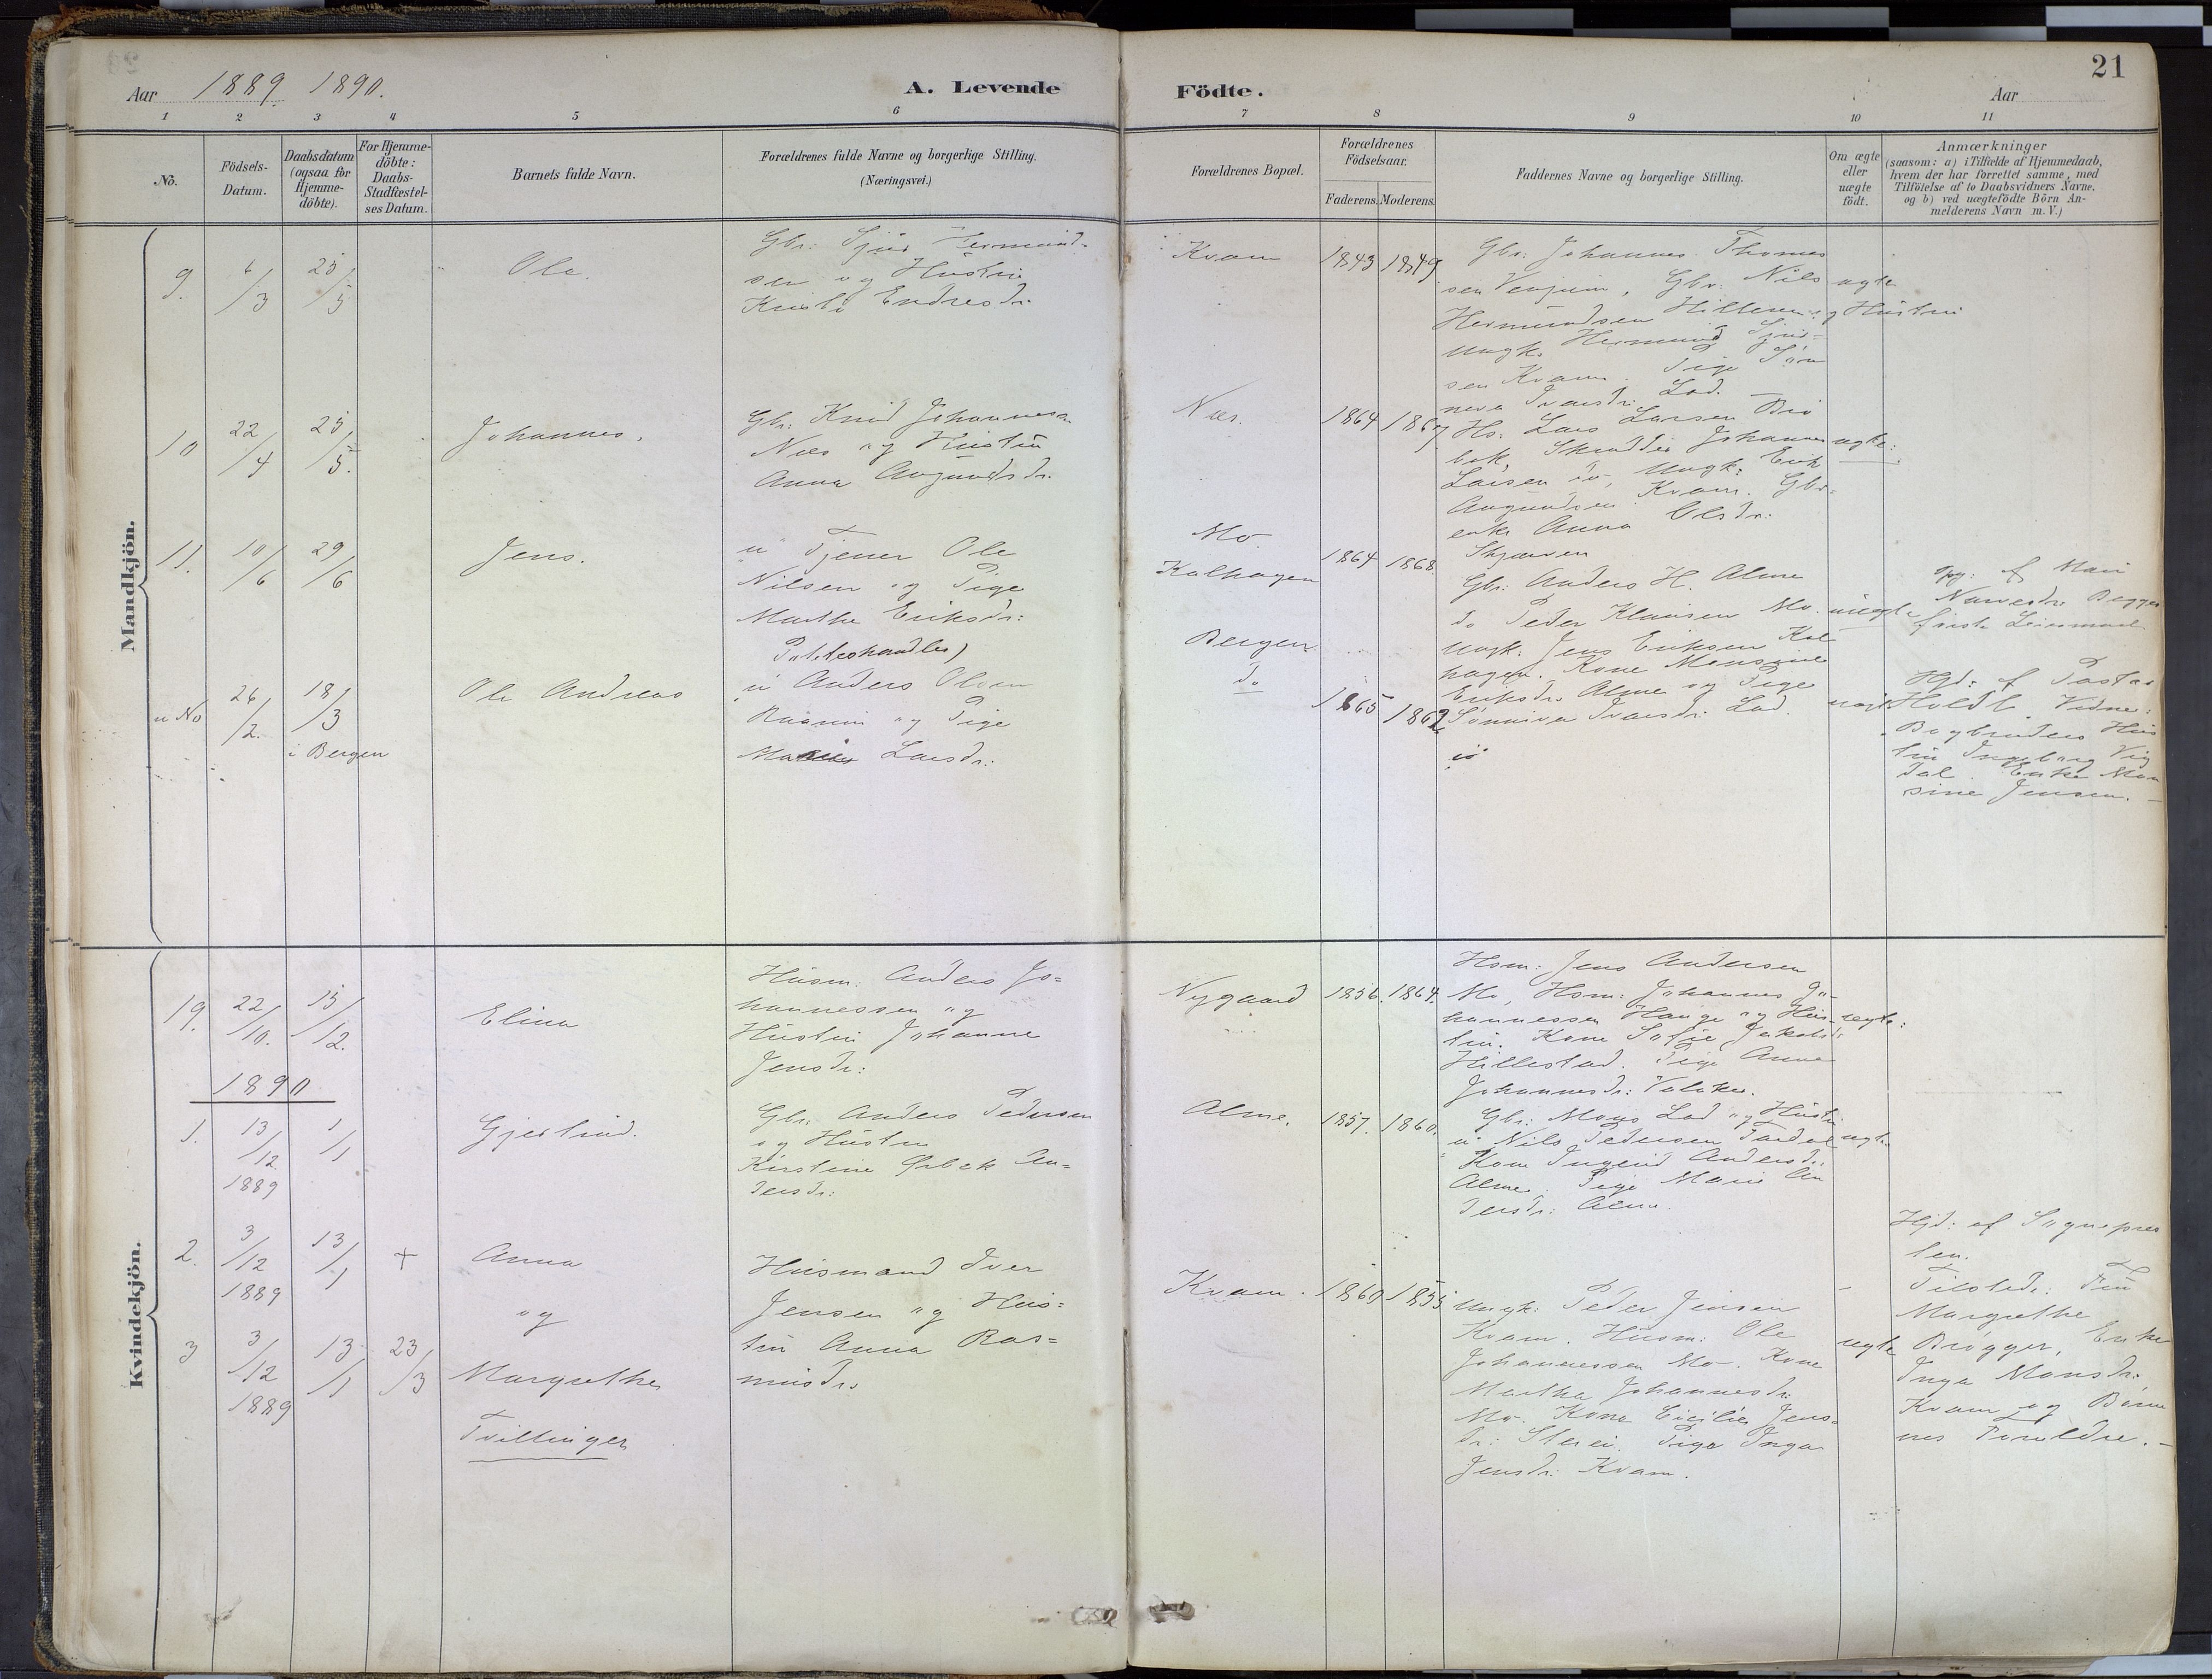 21
Aar 1889. 1890.
A. Levende Födte.
Aar
1 2 3 4 5 6 7 8 9 10 11
No.
Födsels-Datum.
Daabsdatum (ogsaa for Hjemme-döbte).
For Hjemme-döbte: Daabs-Stadfæstel-ses Datum.
Barnets fulde Navn.
Forældrenes fulde Navne og borgerlige Stilling.
(Næringsvei.)
Forældrenes Bopæl.
Forældrenes Födselsaar.
Faderens. Moderens.
Faddernes Navne og borgerlige Stilling.
Om ægte eller uægte födt.
Anmærkninger
(saasom: a) i Tilfælde af Hjemmedaab,
hvem der har forrettet samme, med
Tilföielse af to Daabsvidners Navne.
og b) ved uægtefödte Börn An-
melderens Navn m. V.)
Mandkjön.
9. 6/3 25/5
Ole.
Gbr. Sjur Hermund-
sen og Hustru
Kristi Endresdr.
Kvam
1843 1849
Gbr. Johannes Thomes
sen Venjum, Gbr. Nils
Hermundsen Hilleren og Hustru
Ungk. Hermund Sjur-
sen Kvam. Pige Sön
neva Ivarsdr. Lad.
ægte
10 22/4 25/5.
Johannes.
Gbr. Knud Johannesen
Næs og Hustru
Anna Augundsdr.
Næs.
1864 1867
Hs. Lars Larsen
Johannes
Larsen do, Ungk. Erik
Augundsen Kvam. Gbr-
enke Anna Olsdr.
Skjærven
ægte.
11. 10/6 29/6
Jens.
Tjener Ole
Nilsen og Pige
Marthe Eriksdr.
Mo
Kalhagen
1864 1868.
Gbr. Anders H. Alme
do Peder Klausen Mo.
Ungk. Jens Eriksen Kal
hagen. Kone Monsine
Eriksdr. Alme og Pige
Sönniva Ivarsdr. Lad.
uægte
Opg. af Mari
u No 26/2. 18/3
i Bergen
Ole Andreas
Anders Olsen
og Pige
Larsdr.
Bergen
do
1865 1862
uægte
Hjd. af Pastor
Holdt Vidne:
Bogbinders Hus
tru Ingeborg Vig
dal. Enke Mon
sine Jensen.
Kvindekjön.
19. 22/10. 15/12.
Elina
Husm. Anders Jo=
hannessen og
Hustru Johanne
Jensdr.
Nygaard
1856. 1864.
Hsm: Jens Andersen
Mo, Hsm: Johannes Jo-
hannessen Hauge og Hus-
tru. Kone Sofie Jakobsdr
Hillestad. Pige Anna
Johannesdr: Valaker.
ægte
1890
1. 13/12 1889 1/1
Gjertrud.
Gbr: Anders Pedersen
og Hustru
Kirstine Orbek An=
dersdr:
Alme.
1857. 1860.
Gbr: Mons Lad og Hustru
Nils Pedersen
Kone Ingerid Andersdr:
Alme. Pige Marie An
dersdr: Alme.
ægte
2. 3/12 1889 13/1 +
Anna
og
3 3/12 1889 13/1 23/3
Margrethe
Tvillinger
Husmand Iver
Jensen og Hus=
tru Anna Ras=
musdr.
Kvam.
1860 1855
Ungk: Peder Jensen
Kvam. Husm: Ole
Johannessen Mo. Kone
Martha Johannesdr.
Mo. Kone Cicilie Jens-
dr: Pige Inga
Jensdr. Kvam.
ægte
Hjd: af Sognepres
ten.
Tilstede: Fru
Margrethe
Brögger, Enke
Inga Monsdr.
Kvam og Börne
nes Forældre.